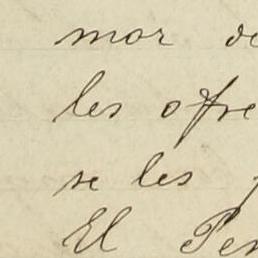 mor de
les ofre
se les
El Per